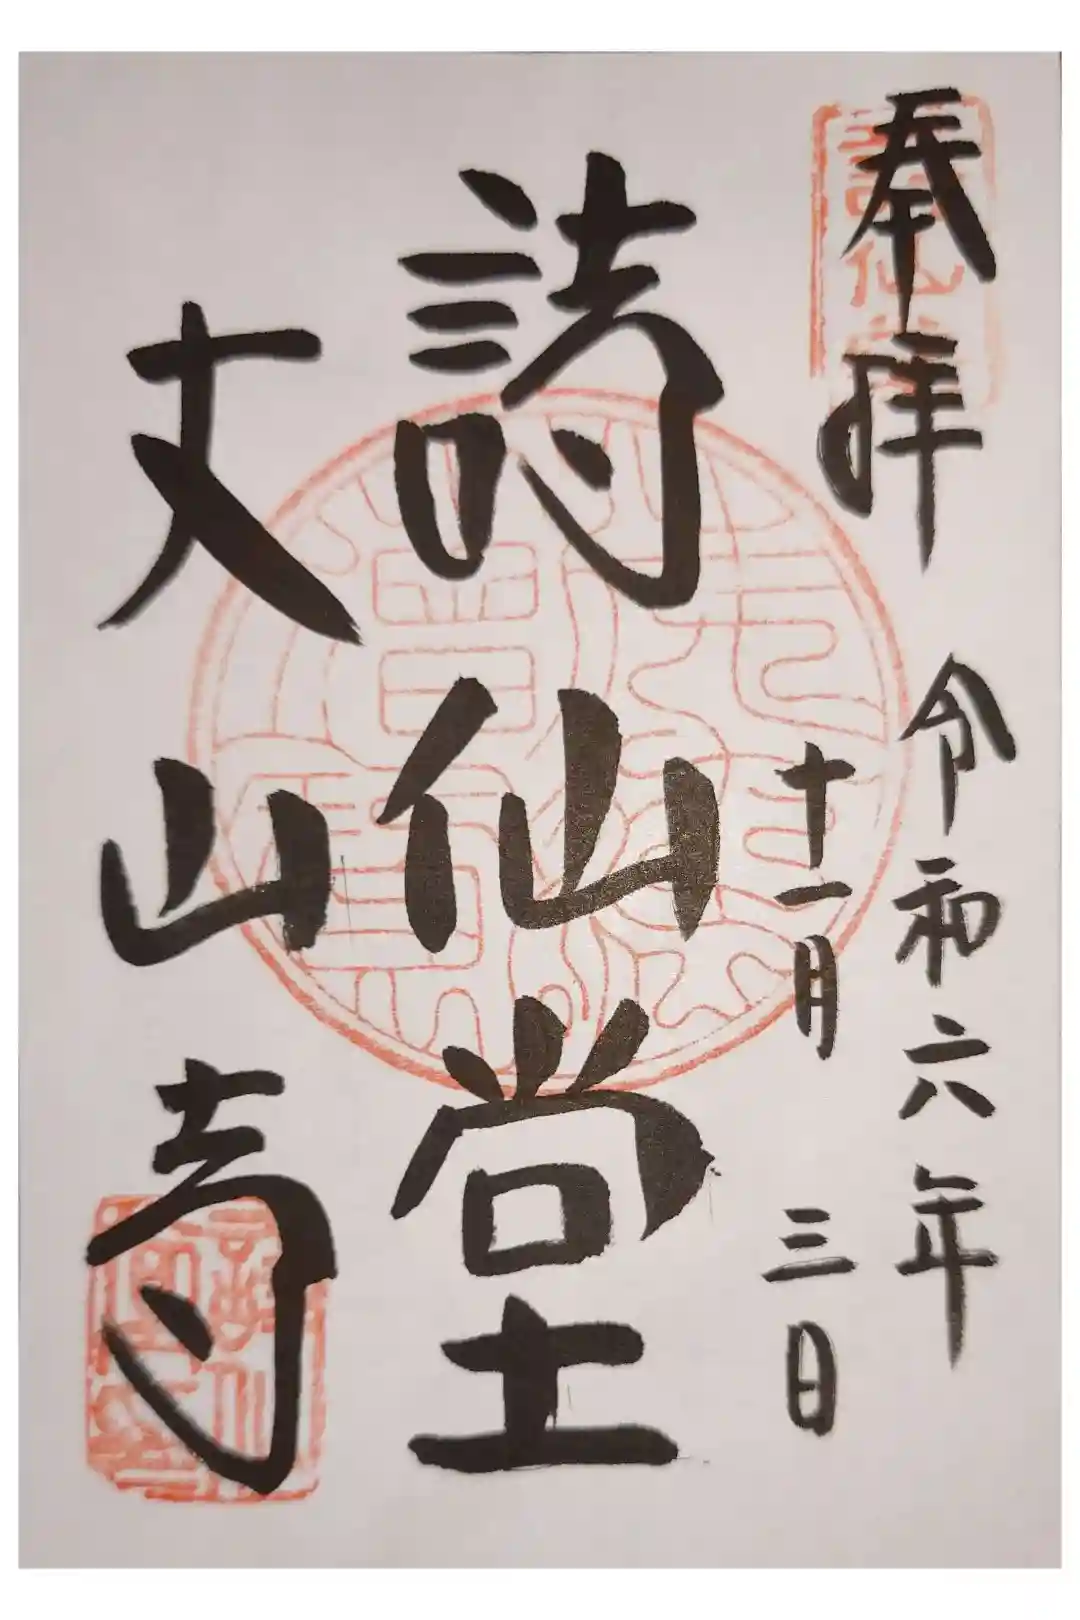 奉拝
令和六年
十一月三日
詩仙堂
丈山寺